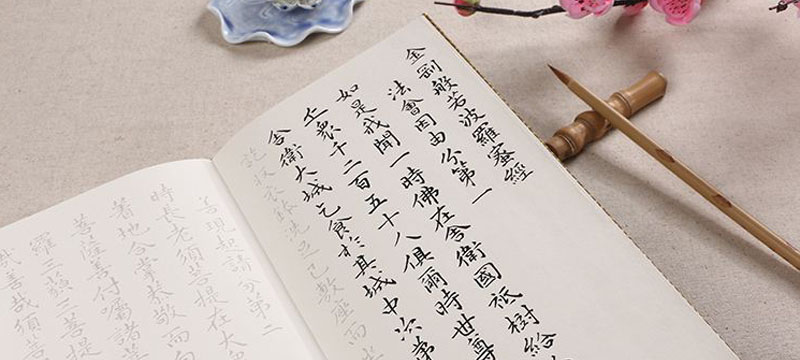 金剛般若波羅蜜經
法會因由分第一
如是我聞一時佛在舍衛國祇樹給
丘衆千二百五十人俱爾時世尊
舍衛大城乞食於其城中次第
訖收衣鉢洗足已敷座而坐
善現起請分第二
時長老須菩提在大
著地合掌恭敬而
菩薩善付囑諸菩
羅三藐三菩提
哉善哉須菩